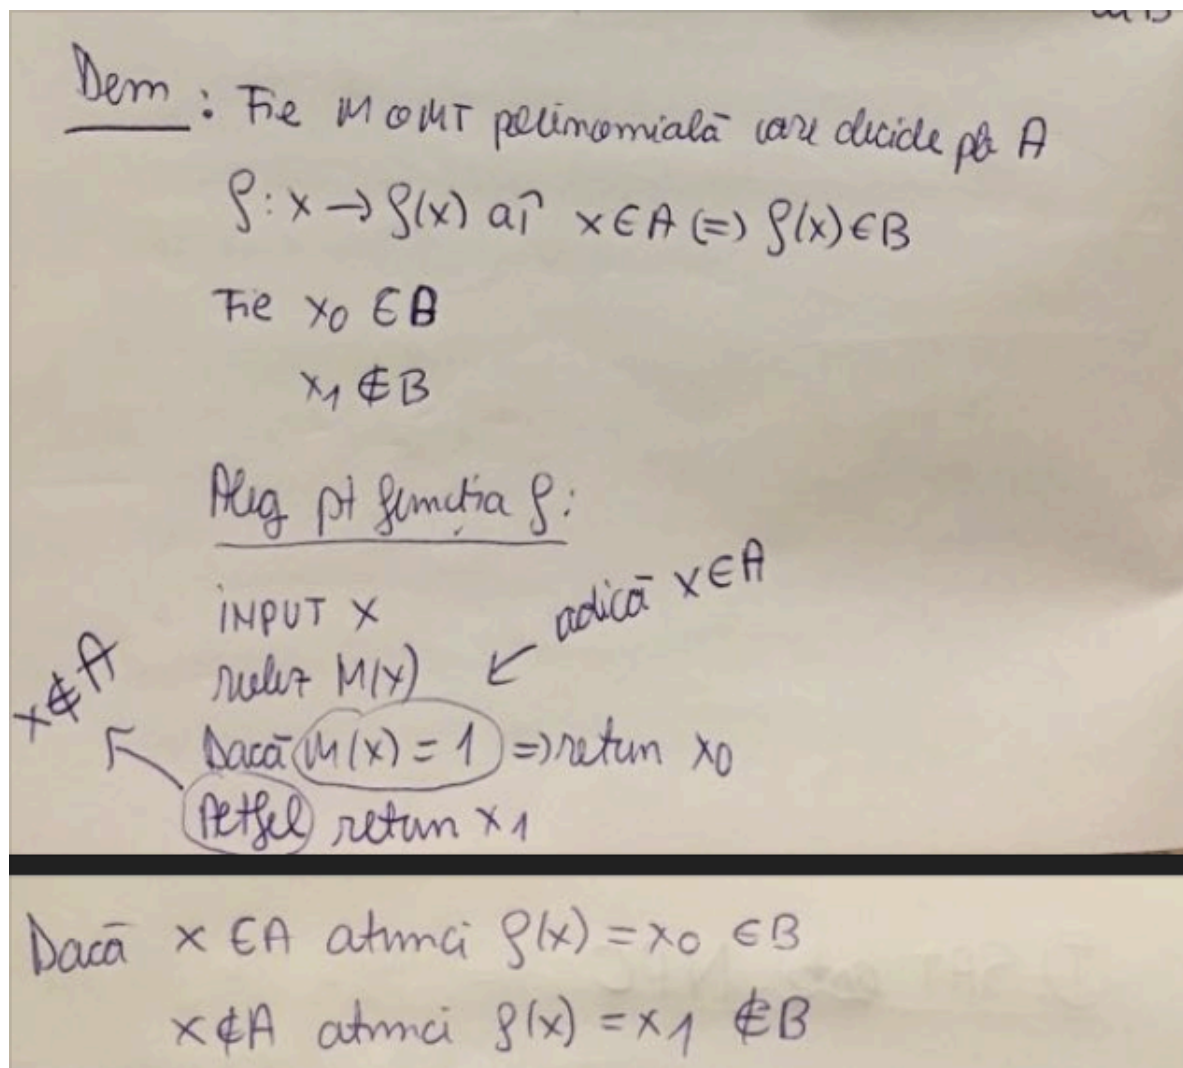 Dem : Fie M o MT polinomială care decide pb A
f: x → f(x) aî x∈A (=) f(x)∈B
Fie x0 ∈B
x1 ∉B
Aleg pt funcția f:
x∉A
INPUT x
adică x∈A
rulez M(x)
Dacă M(x) = 1 => return x0
Altfel return x1
Dacă x ∈A atunci f(x) = x0 ∈B
x∉A atunci f(x) = x1 ∉B